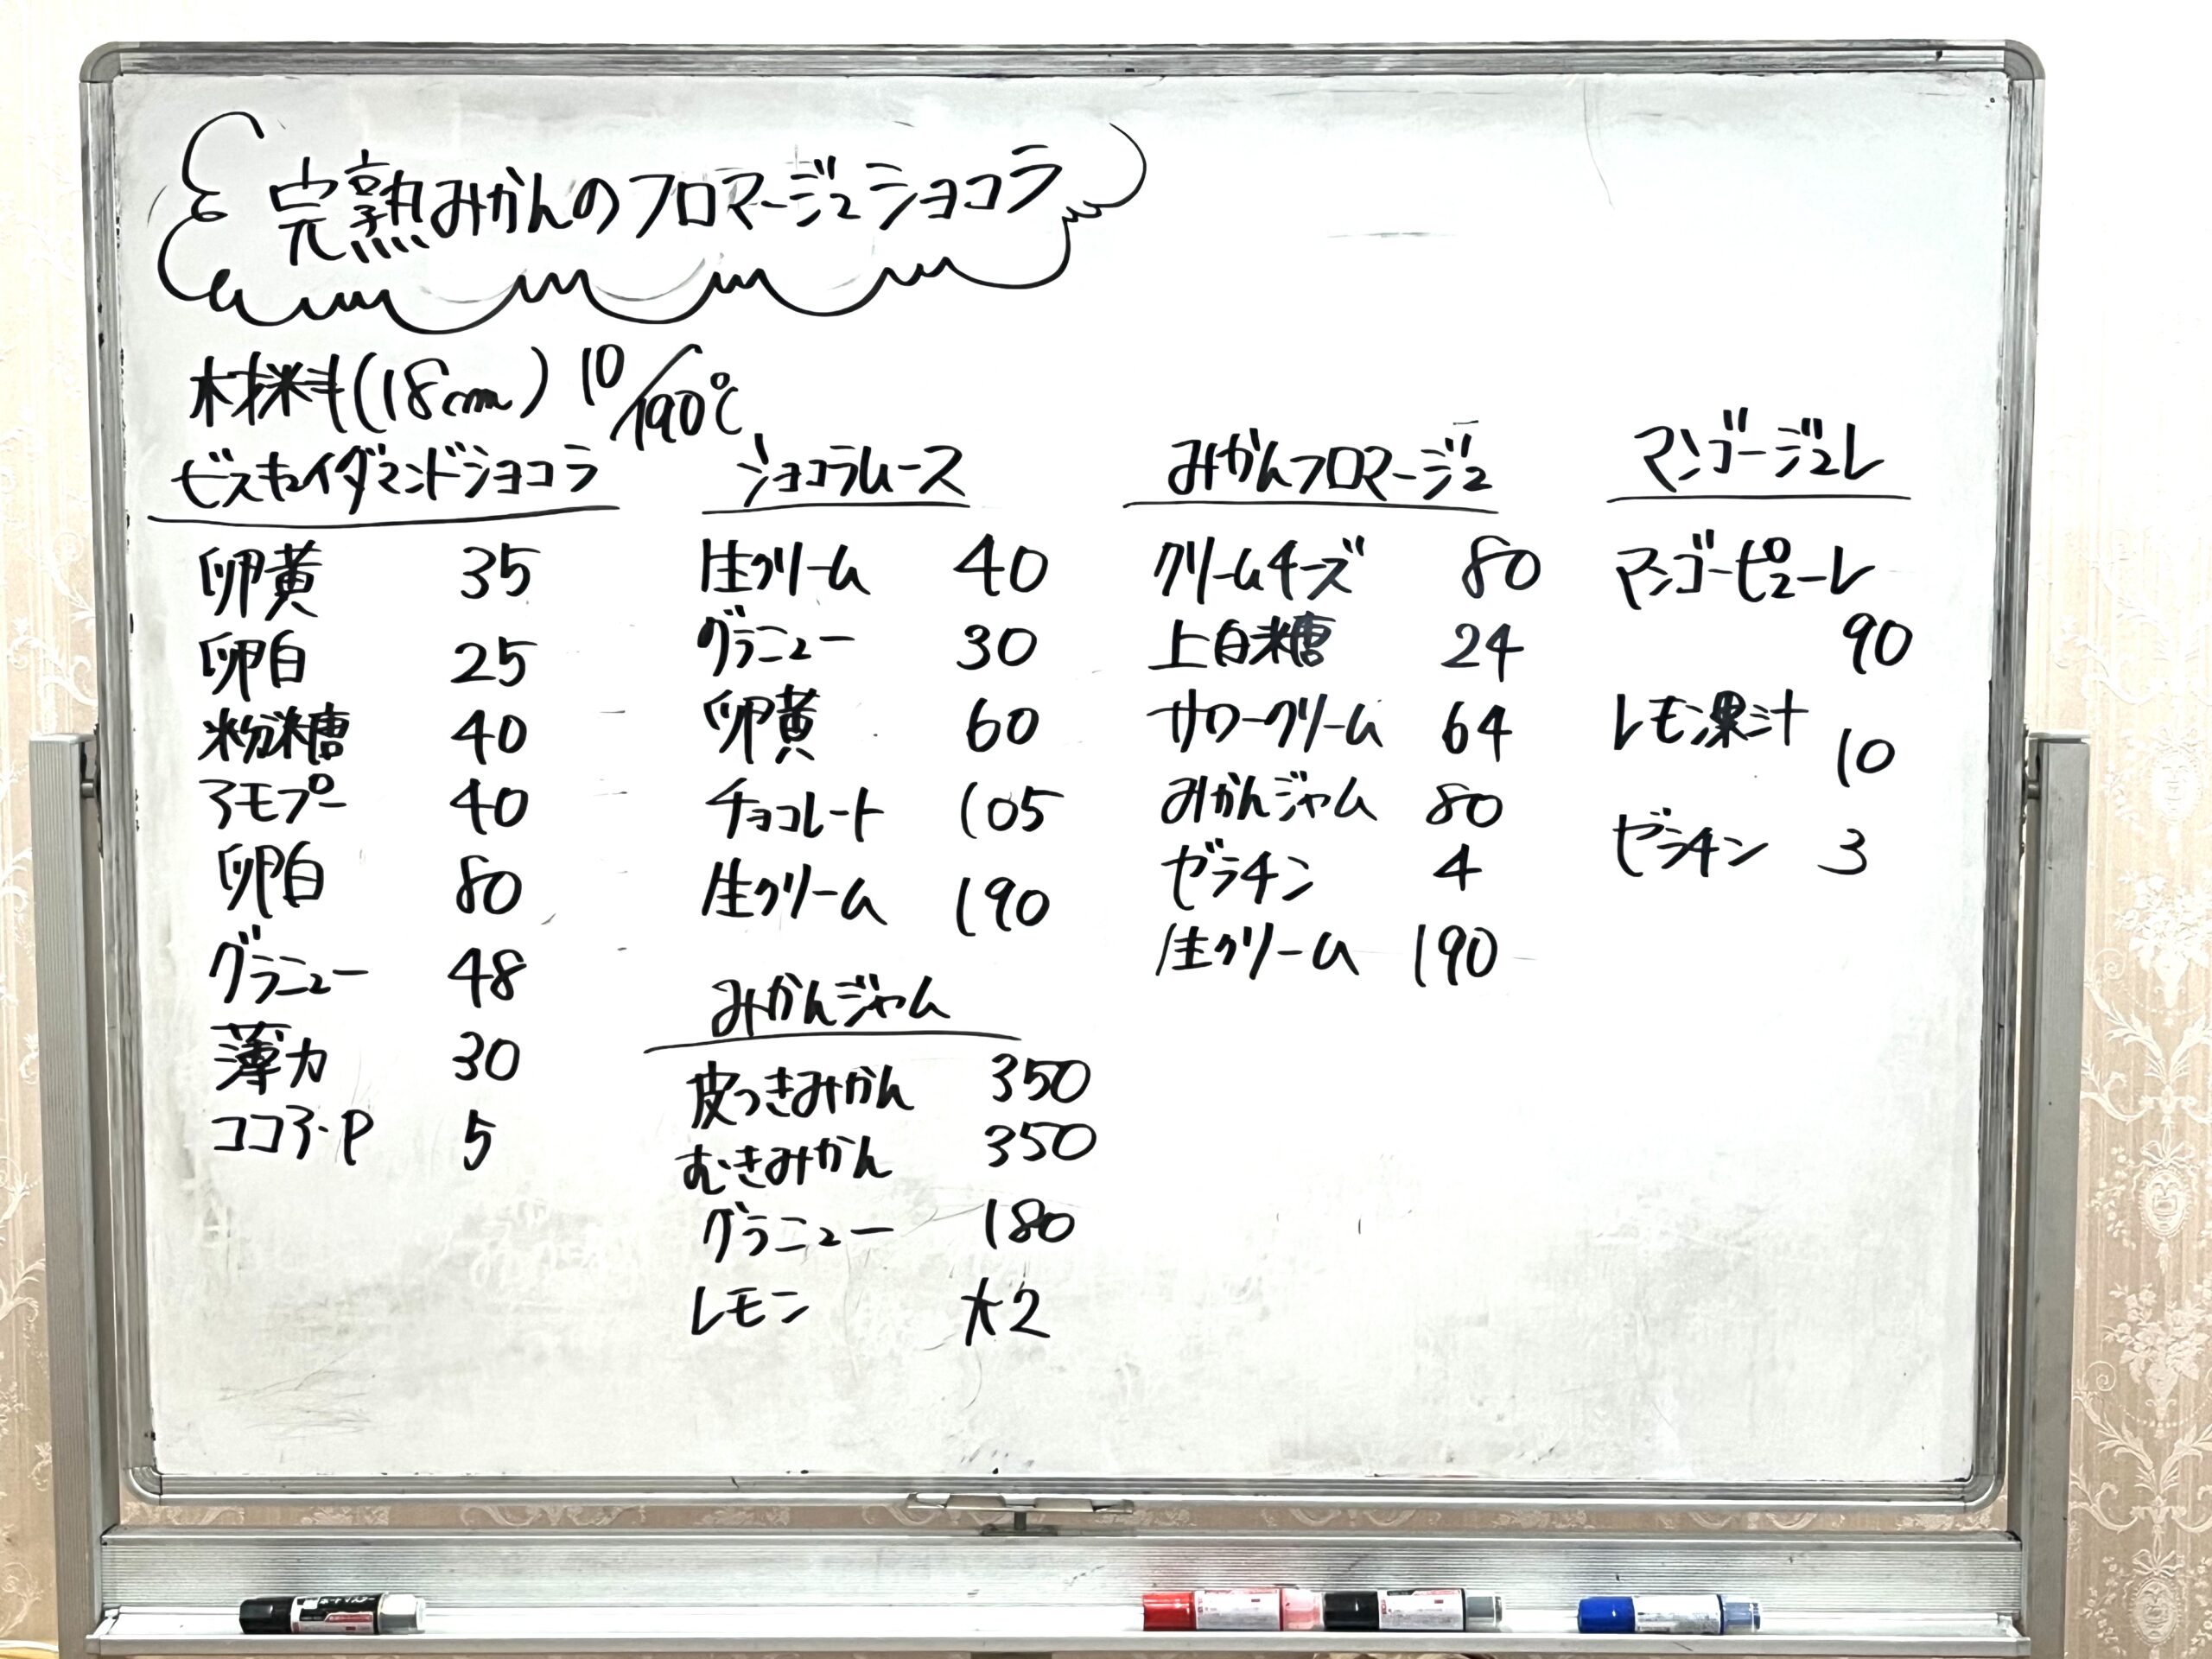 完熟みかんのフロマージュショコラ
材料(18cm) 10/190℃
ビスキュイダマンドショコラ
卵黄 35
卵白 25
粉糖 40
アモプー 40
卵白 80
グラニュー 48
薄力 30
ココア・P 5
ショコラムース
生クリーム 40
グラニュー 30
卵黄 60
チョコレート 105
生クリーム 190
みかんジャム
皮つきみかん 350
むきみかん 350
グラニュー 180
レモン 大2
みかんフロマージュ
クリームチーズ 80
上白糖 24
サワークリーム 64
みかんジャム 80
ゼラチン 4
生クリーム 190
マンゴージュレ
マンゴーピューレ
90
レモン果汁 10
ゼラチン 3